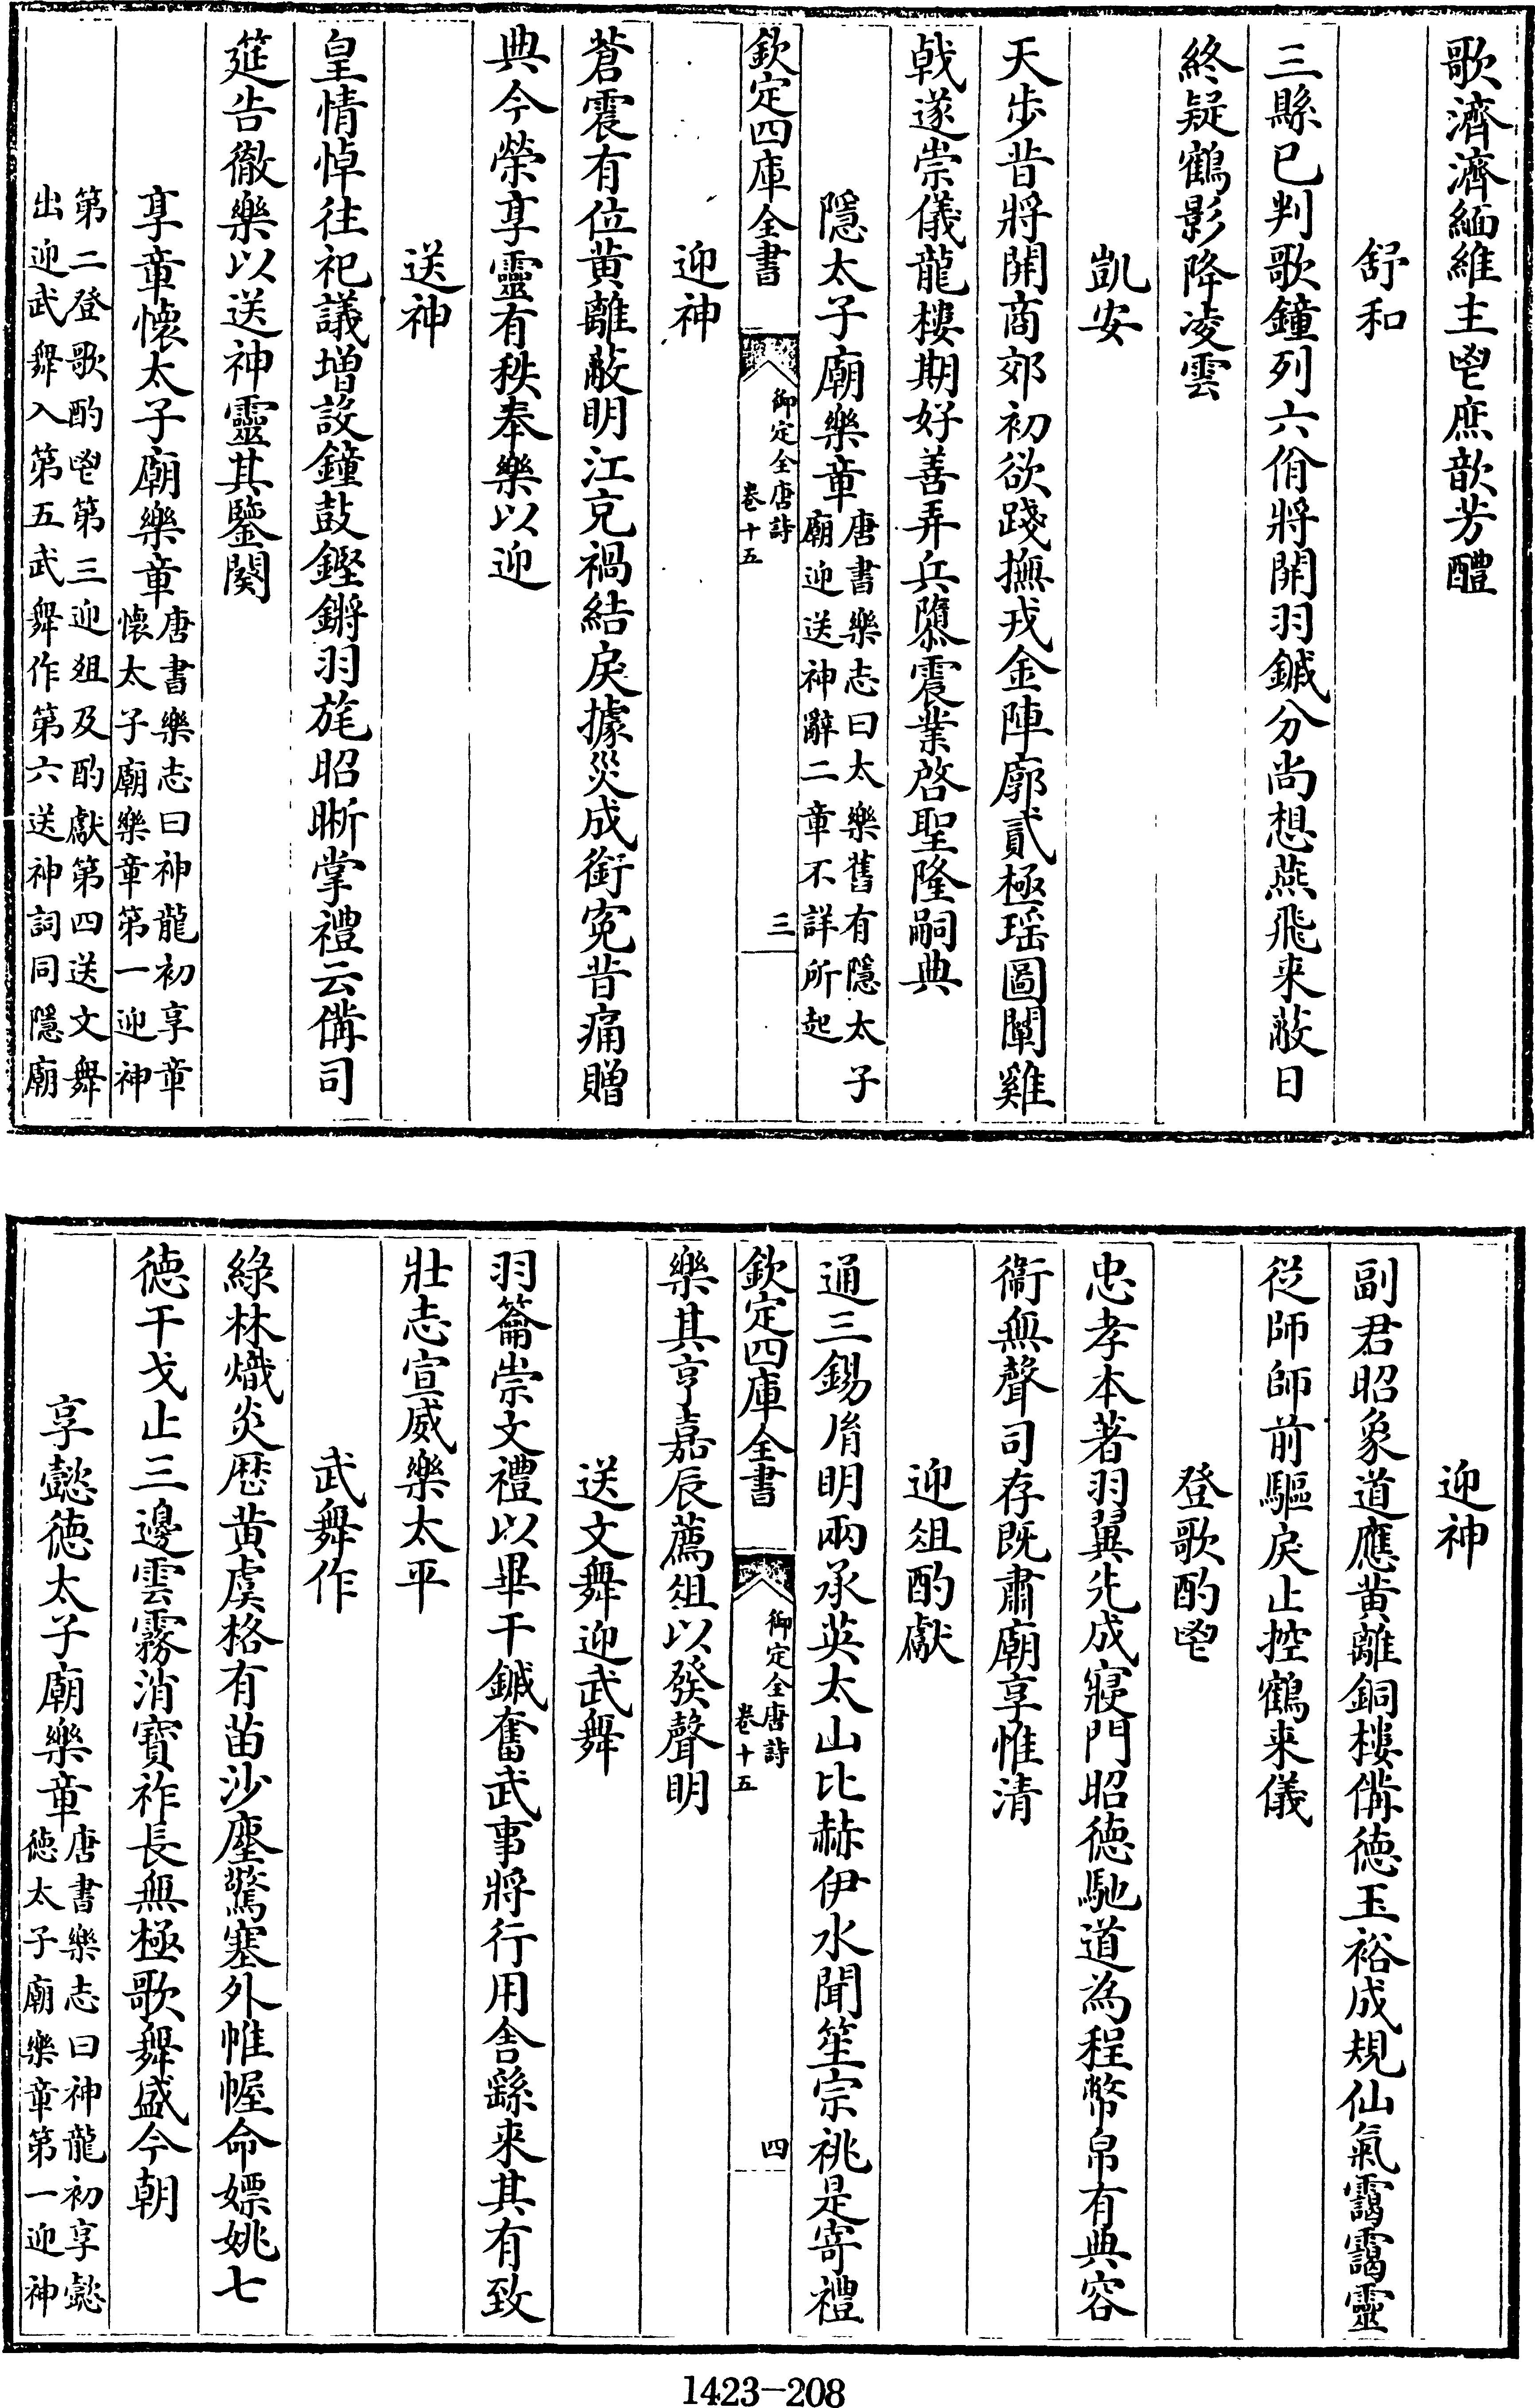 歌濟濟緬維主鬯庶歆芳醴
舒和
三縣已判歌鐘列六佾將開羽鏚分尚想燕飛来蔽日
終疑鶴影降凌雲
凱安
天步昔將開商郊初欲踐撫戎金陣廓貳極瑶圖闡雞
戟遂崇儀龍樓期好善弄兵隳震業啓聖隆嗣典
隱太子廟樂章唐書樂志曰太樂舊有隱太子
廟迎送神辭二章不詳所起
欽定四庫全書
御定全唐詩
卷十五
三
迎神
蒼震有位黄離蔽明江充禍結戾據災成銜寃昔痛贈
典今榮享靈有秩奉樂以迎
送神
皇情悼往祀議增設鐘鼓鏗鏘羽旄昭晰掌禮云備司
筵告徹樂以送神靈其鑒闋
享章懷太子廟樂章唐書樂志曰神龍初享章
懷太子廟樂章第一迎神
第二登歌酌鬯第三迎俎及酌獻第四送文舞
出迎武舞入第五武舞作第六送神詞同隱廟
迎神
副君昭象道應黄離銅樓備徳玉裕成規仙氣靄靄靈
從師師前驅戾止控鶴来儀
登歌酌鬯
忠孝本著羽翼先成寢門昭徳馳道為程幣帛有典容
衞無聲司存既肅廟享惟清
迎俎酌獻
通三錫胤明兩承英太山比赫伊水聞笙宗祧是寄禮
欽定四庫全書
御定全唐詩
卷十五
四
樂其亨嘉辰薦俎以發聲明
送文舞迎武舞
羽籥崇文禮以畢干鏚奮武事將行用舎繇来其有致
壯志宣威樂太平
武舞作
綠林熾炎厯黄虞格有苗沙塵驚塞外帷幄命嫖姚七
徳干戈止三邊雲霧消寶祚長無極歌舞盛今朝
享懿徳太子廟樂章唐書樂志曰神龍初享懿
徳太子廟樂章第一迎神
1423-208